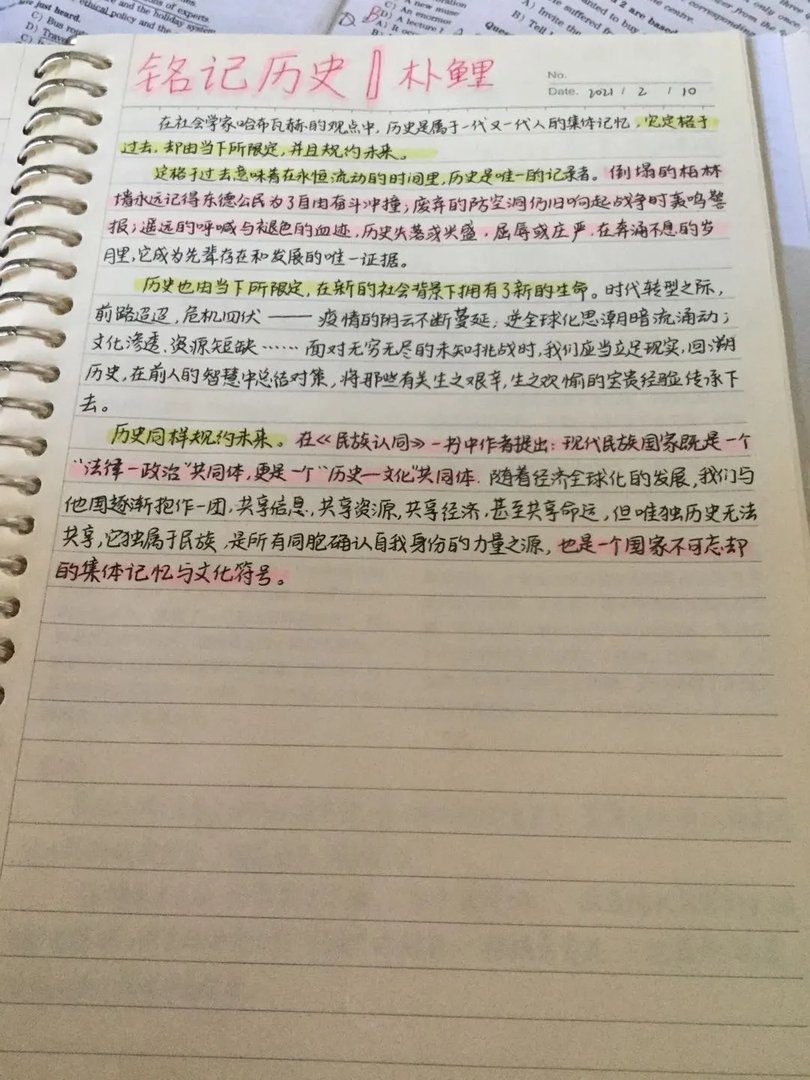 just heard.
C) An enormous
铭记历史 || 朴鲤
No.
Date. 2021 / 2 / 10
在社会学家哈布瓦赫的观点中，历史是属于一代又一代人的集体记忆，它定格于
过去，却由当下所限定，并且规约未来。
定格于过去意味着在永恒流动的时间里，历史是唯一的记录者。倒塌的柏林
墙永远记得东德公民为了自由奋斗冲撞；废弃的防空洞仍旧响起战争时轰鸣警
报；遥远的呼喊与褪色的血迹，历史失落或兴盛，屈辱或庄严，在奔涌不息的岁
月里，它成为先辈存在和发展的唯一证据。
历史也由当下所限定，在新的社会背景下拥有了新的生命。时代转型之际，
前路迢迢，危机四伏——疫情的阴云不断蔓延；逆全球化思潮暗流涌动；
文化渗透、资源短缺……面对无穷无尽的未知挑战时，我们应当立足现实，回溯
历史，在前人的智慧中总结对策，将那些有关生之艰辛，生之欢愉的宝贵经验传承下
去。
历史同样规约未来。在《民族认同》一书中作者提出：现代民族国家既是一个
“法律—政治”共同体，更是一个“历史—文化”共同体．随着经济全球化的发展，我们与
他国逐渐抱作一团，共享信息，共享资源，共享经济，甚至共享命运，但唯独历史无法
共享，它独属于民族，是所有同胞确认自我身份的力量之源，也是一个国家不可忘却
的集体记忆与文化符号。